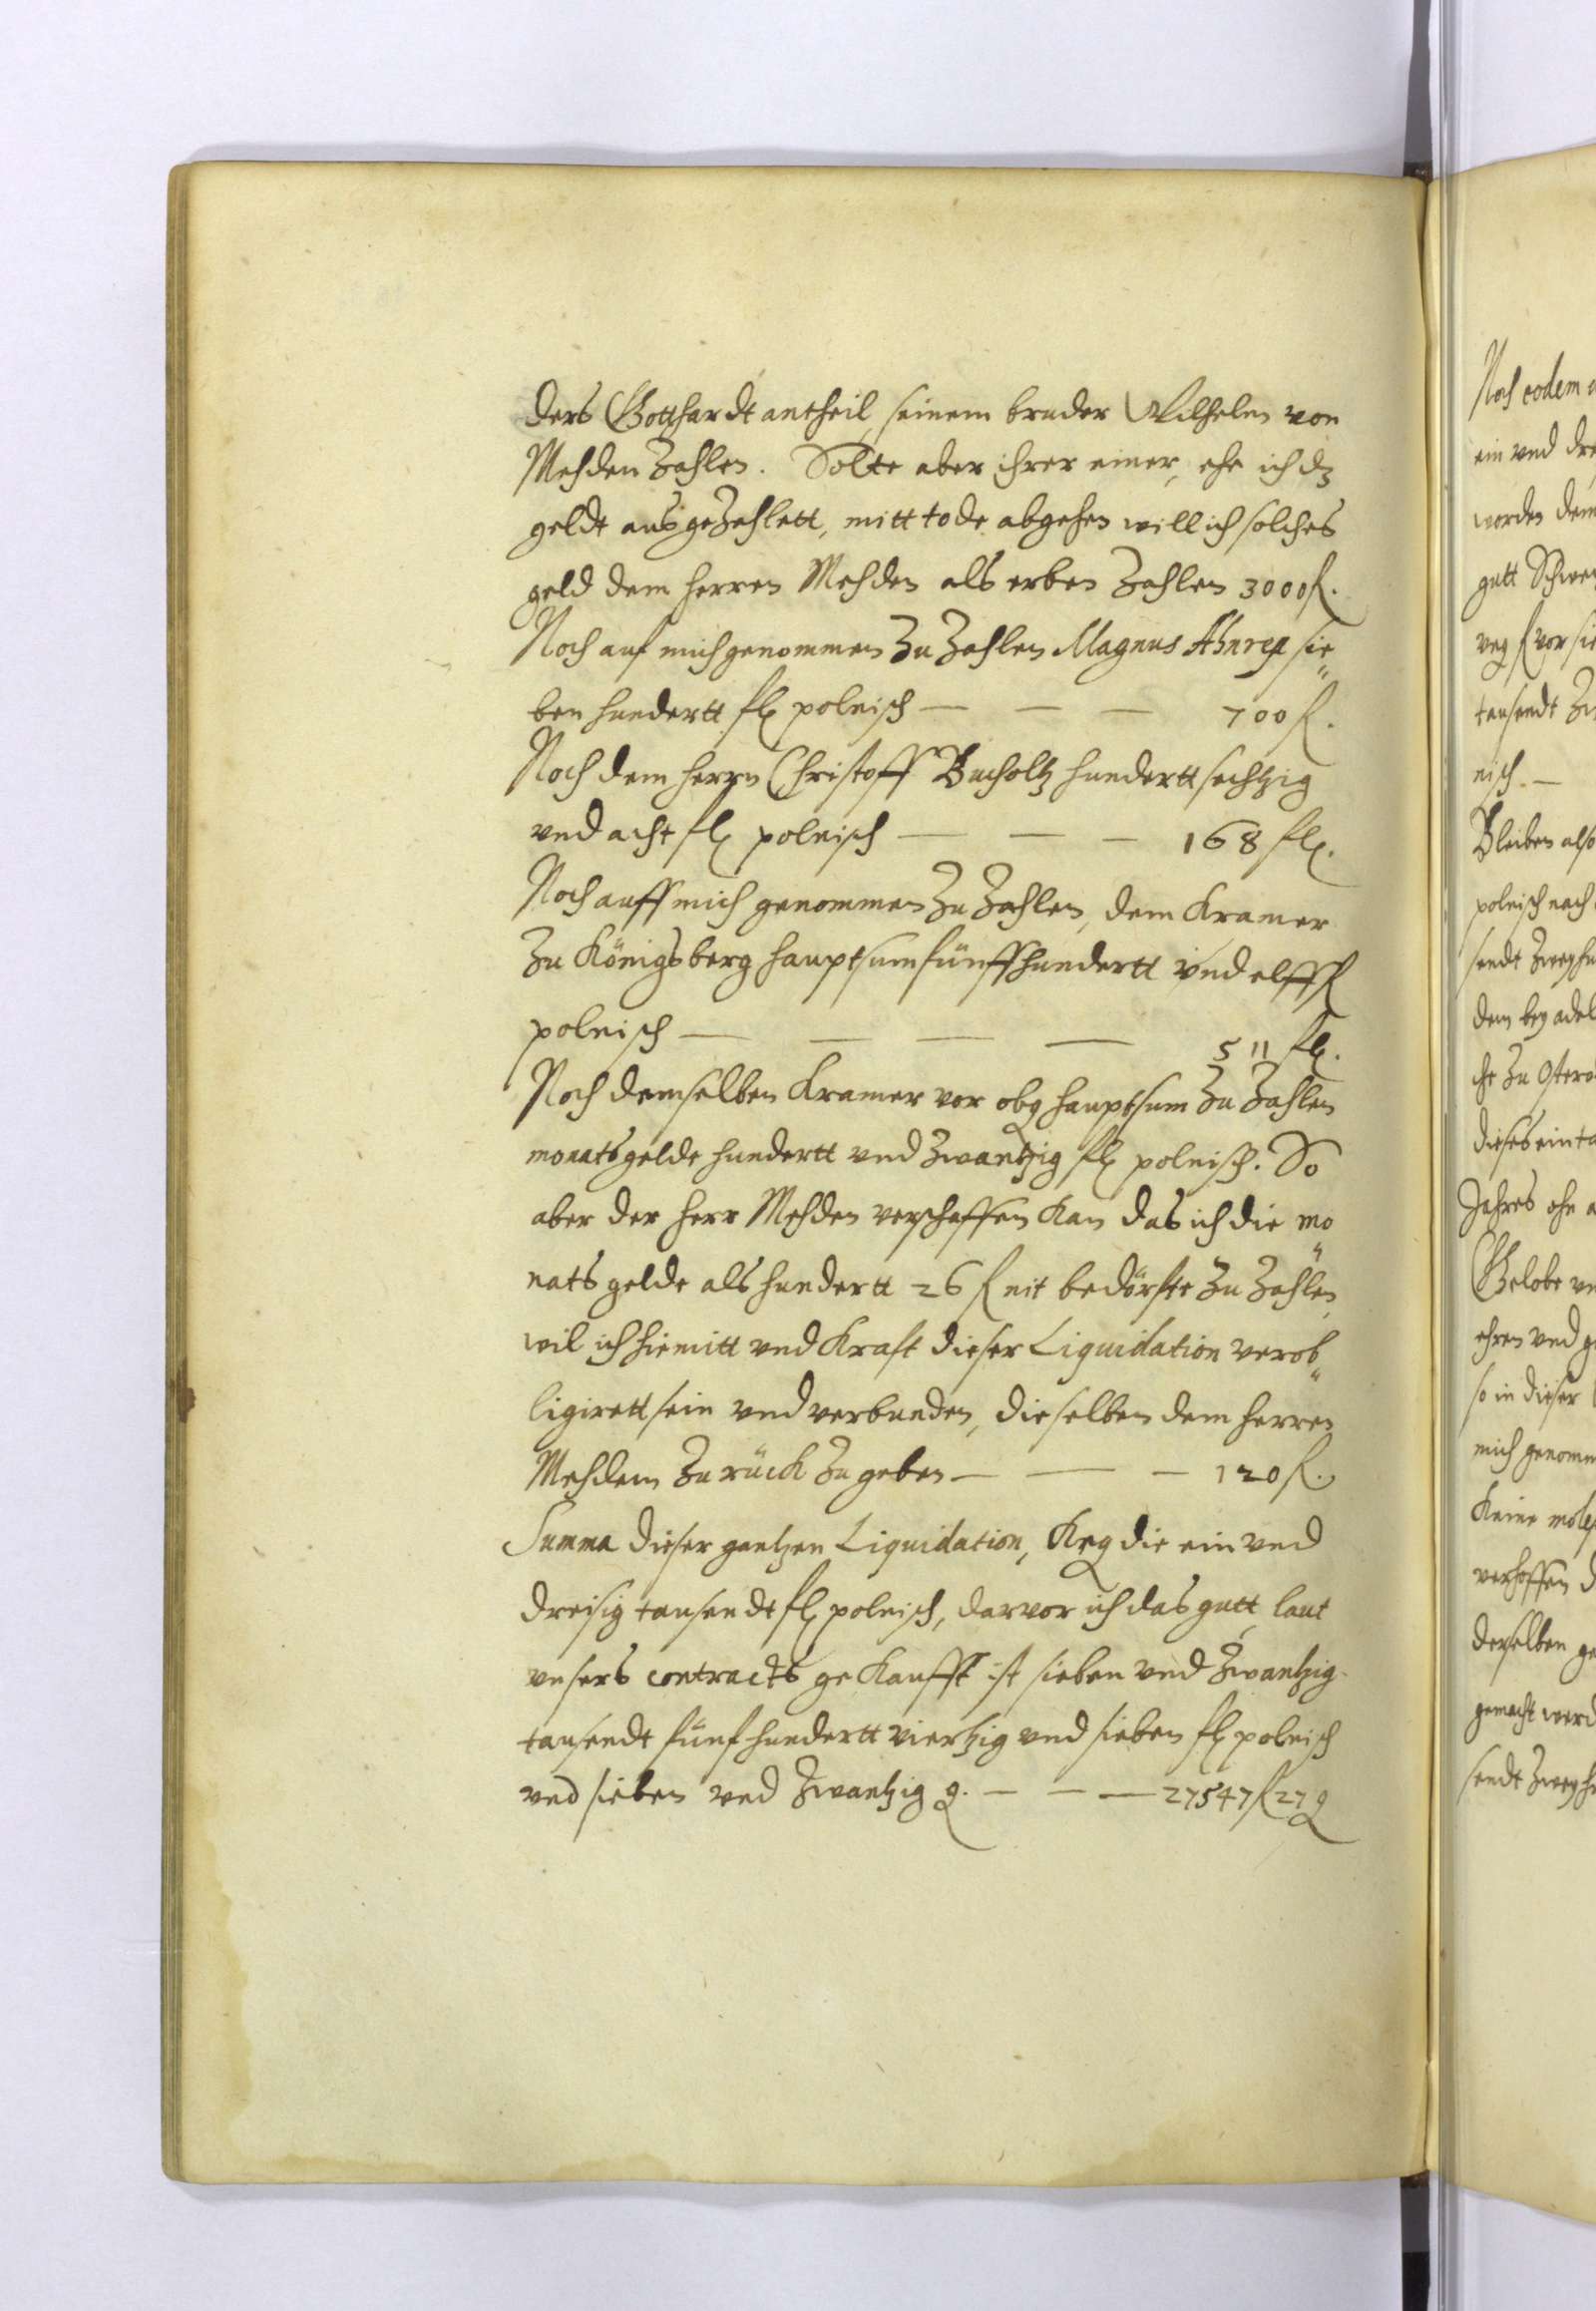 ders Gotthardt antheil, seinem bruder Wilhelm von
Mehden Zahlen. Solte aber ihrer einer, ehe ich dz
geldt ausgezahlett, mitt tode abgehen will ich solches
geld dem herren Mehden als erben Zahlen 3000 fl.
Noch auf mich genommen Zu Zahlen Magnus Ahnrep sie„
ben hundertt fl polnisch — — — 700 fl.
Noch dem herrn Christoff Bucholtz hundertt sechtzig
vnd acht fl polnisch — — — 168 fl.
Noch auff mich genommen Zu Zahlen, dem Kramer
Zu Königsberg hauptsum fünffhundertt vnd elff fl
polnisch — — — — 511 fl.
Noch demselben Kramer vor obg hauptsum Zu Zahlen
monatsgelde hundertt vnd Zwantzig fl polnisch. So
aber der herr Mehden verschaffen Kan das ich die mo„
natsgelde als hundertt 26 fl nit bedörfte Zu Zahlen,
wil ich hiemitt vnd Kraft dieser Liquidation verob„
ligirett sein vnd verbunden, dieselben dem herren
Mehdem Zurück Zu geben — — — 120 fl.
Summa dieser gantzen Liquidation, Keg die ein vnd
dreisig tausendt fl polnisch, darvor ich das gutt laut
vnsers contracts geKaufft ist sieben vnd Zwantzig
tausendt fünf hundertt viertzig vnd sieben fl polnisch
vnd sieben vnd Zwantzig g. — — — 27547 fl 27 g
Noch eodem
ein vnd dre
worden dem
gutt
veg fl vor sie
tausendt Zw
nisch —
Bleiben also
polnisch nach
sendt Zweyhu
dem bey adel
che Zu Ostern
dieses ein ta
Jahres ohn a
Gelobe vn
ehren vnd g
so in dieser
mich genomm
Keine moles
verhoffen d
derselben ge
gemacht werd
sendt Zweyh